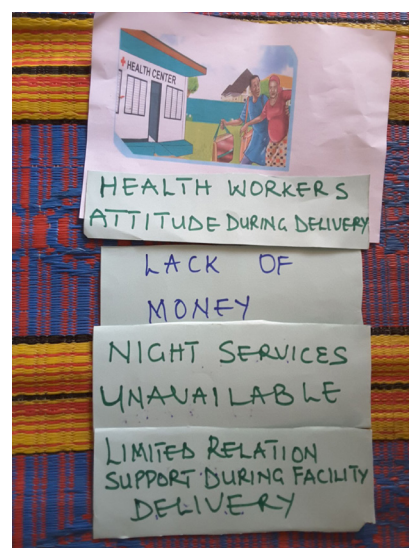 HEALTH CENTER
HEALTH WORKERS
ATTITUDE DURING DELIVERY
LACK OF
MONEY
NIGHT SERVICES
UNAVAILABLE
LIMITED RELATION
SUPPORT DURING FACILITY
DELIVERY